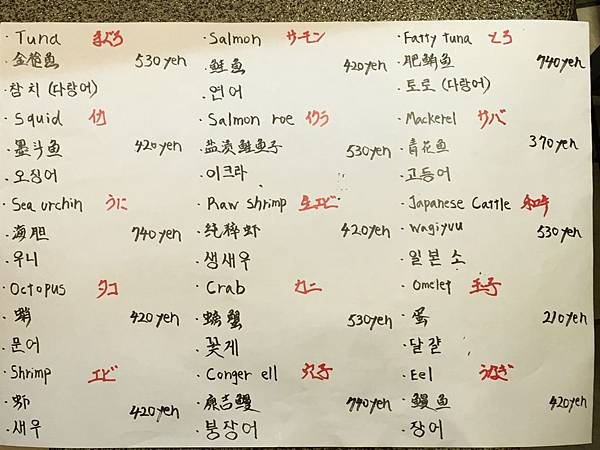 · Tuna まぐろ
· 金槍魚 530yen
· 참치 (다랑어)
· Squid イカ
· 墨斗魚 420yen
· 오징어
· Sea urchin うに
· 海胆 740yen
· 우니
· Octopus タコ
· 蛸 420yen
· 문어
· Shrimp エビ
· 虾 420yen
· 새우
· Salmon サーモン
· 鮭魚 420yen
· 연어
· Salmon roe イクラ
· 盐渍鮭魚子 530yen
· 이크라
· Raw shrimp 生エビ
· 纯粹虾 420yen
· 생새우
· Crab カニ
· 螃蟹 530yen
· 꽃게
· Conger ell 穴子
· 康吉鰻 740yen
· 붕장어
· Fatty tuna とろ
· 肥鮪魚 740yen
· 토로 (다랑어)
· Mackerel サバ
· 青花魚 370yen
· 고등어
· Japanese Cattle 和牛
· wagiyuu 530yen
· 일본 소
· Omelet 玉子
· 蛋 210yen
· 달걀
· Eel うなぎ
· 鰻魚 420yen
· 장어